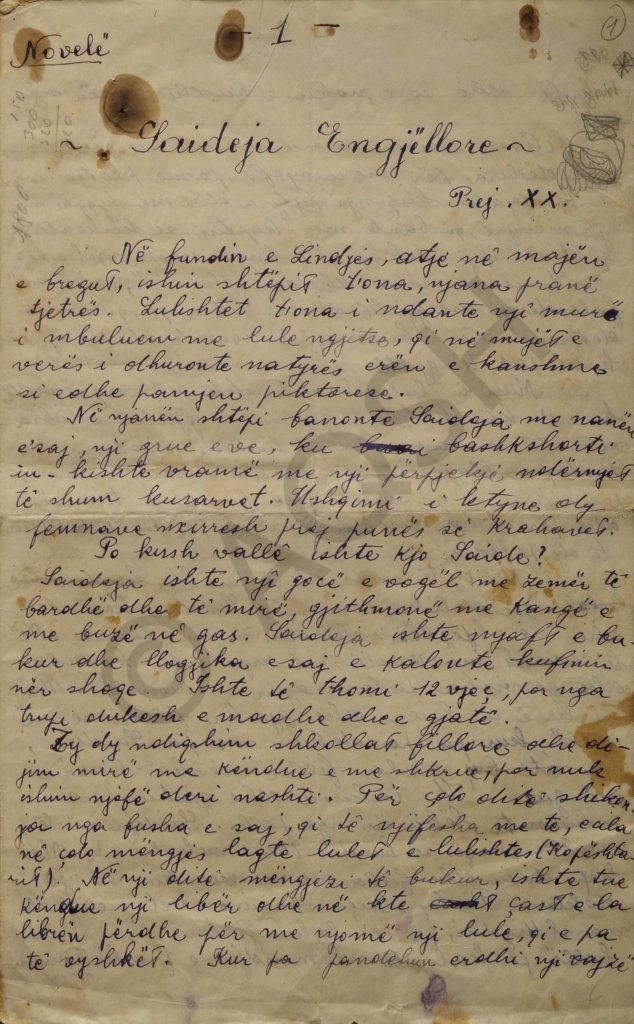 Novelë
- 1 -
1
~ Saideja Engjëllore ~
Prej . XX.
Në fundin e Lindjes, atje në majën
e bregut, ishin shtëpit t'ona, njana pranë
tjetrës. Lulishtet t'ona i ndante një murë
i mbuluem me lule ngjitse, qi në mujët e
verës i dhuronte natyrës erën e kandshme
si edhe pamjen piktorese.
Në njanën shtëpi banonte Saideja me nanën
e saj, nji grue e ve, ku bashkshorti
iu-kishte vramë me nji përpjekje ndërmjet
të shum kusarvet. Ushqimi i ketyne dy
femnave nxirresh prej punës së krahavet.
Po kush vallë ishte kjo Saide?
Saideja ishte një gocë e vogël me zemër të
bardhë dhe të mirë, gjithmonë me kangë e
me buzë në gas. Saideja ishte mjaft e bu
kur dhe llogjika e saj e kalonte kufinin
nër shoqe. Ishte të thomi 12 vjeç, por nga
trupi dukesh e madhe dhe e gjatë.
Ty dy ndiqshim shkollat fillore dhe di-
jim mirë me këndue e me shkrue, por nuk
ishim njofë deri nashti. Për çdo ditë shikon-
ja nga fusha e saj, qi të njifesha me te, e cila
në çdo mëngjes lagte lulet e lulishtes (Kopështa-
rit). Në nji ditë mëngjezi të bukur, ishte tue
këndue nji libër dhe në kte çast e la
librën përdhe për me njomë nji lule, qi e pa
të vyshkët. Kur pa pandehun erdhi nji vajzë